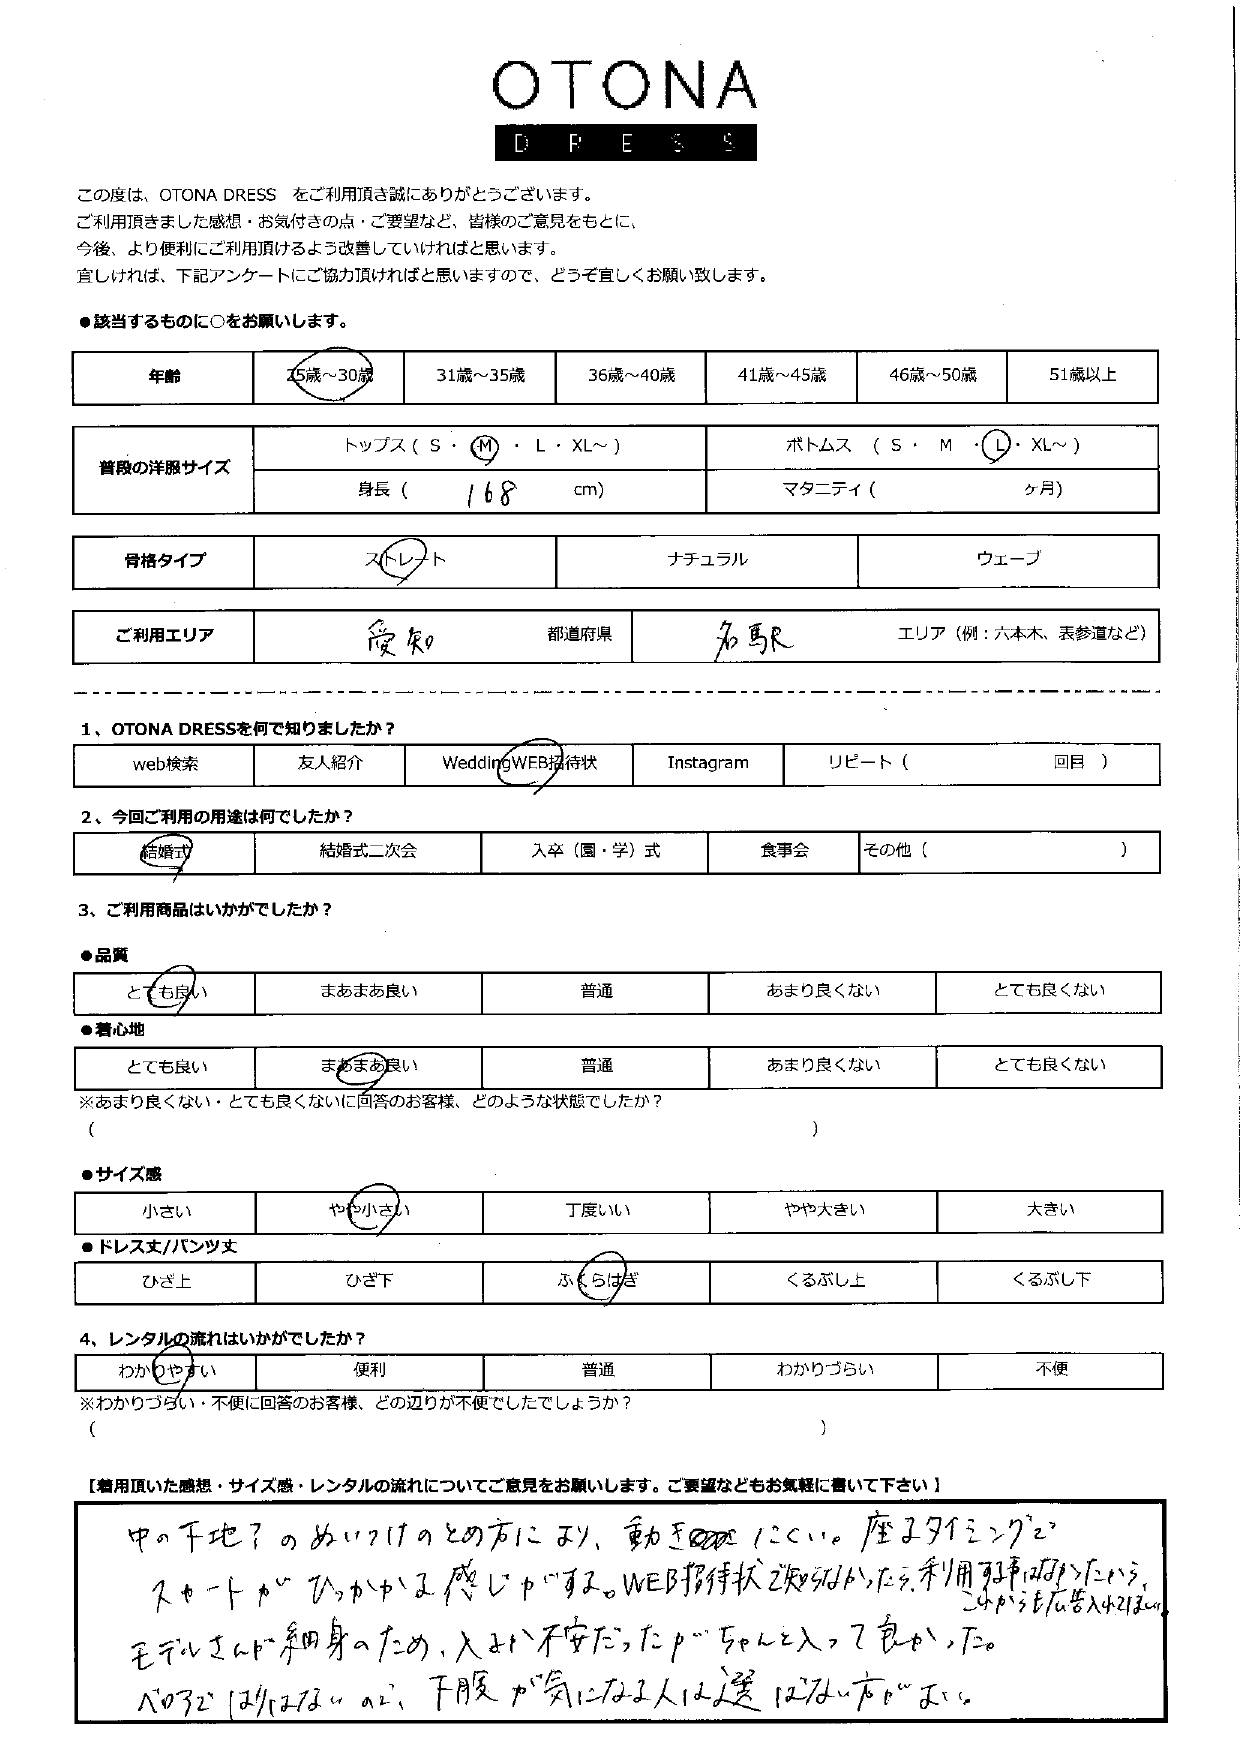 OTONA
DRESS
この度は、OTONA DRESS をご利用頂き誠にありがとうございます。
ご利用頂きました感想・お気付きの点・ご要望など、皆様のご意見をもとに、
今後、より便利にご利用頂けるよう改善していければと思います。
宜しければ、下記アンケートにご協力頂ければと思いますので、どうぞ宜しくお願い致します。
●該当するものに○をお願いします。
年齢 25歳～30歳 31歳～35歳 36歳～40歳 41歳～45歳 46歳～50歳 51歳以上
普段の洋服サイズ トップス ( S ・ M ・ L ・ XL～ ) ボトムス ( S ・ M ・ L ・ XL～ )
身長 ( 168 cm) マタニティ ( ヶ月)
骨格タイプ ストレート ナチュラル ウェーブ
ご利用エリア 愛知 都道府県 名駅 エリア（例：六本木、表参道など）
1、OTONA DRESSを何で知りましたか？
web検索 友人紹介 WeddingWEB招待状 Instagram リピート ( 回目 )
2、今回ご利用の用途は何でしたか？
結婚式 結婚式二次会 入卒（園・学）式 食事会 その他 ( )
3、ご利用商品はいかがでしたか？
●品質
とても良い まあまあ良い 普通 あまり良くない とても良くない
●着心地
とても良い まあまあ良い 普通 あまり良くない とても良くない
※あまり良くない・とても良くないに回答のお客様、どのような状態でしたか？
( )
●サイズ感
小さい やや小さい 丁度いい やや大きい 大きい
●ドレス丈/パンツ丈
ひざ上 ひざ下 ふくらはぎ くるぶし上 くるぶし下
4、レンタルの流れはいかがでしたか？
わかりやすい 便利 普通 わかりづらい 不便
※わかりづらい・不便に回答のお客様、どの辺りが不便でしたでしょうか？
( )
【着用頂いた感想・サイズ感・レンタルの流れについてご意見をお願いします。ご要望などもお気軽に書いて下さい】
中の下地？のぬいつけのとめ方により、動きにくい。座るタイミングで
スカートがひっかかる感じがする。WEB招待状で知らなかったら、利用する事はなかったから、
これからも広告入れてほしい
モデルさんが細身のため、入るか不安だったがちゃんと入って良かった。
ベロアではりはないので、下腹が気になる人は選ばない方がよい。